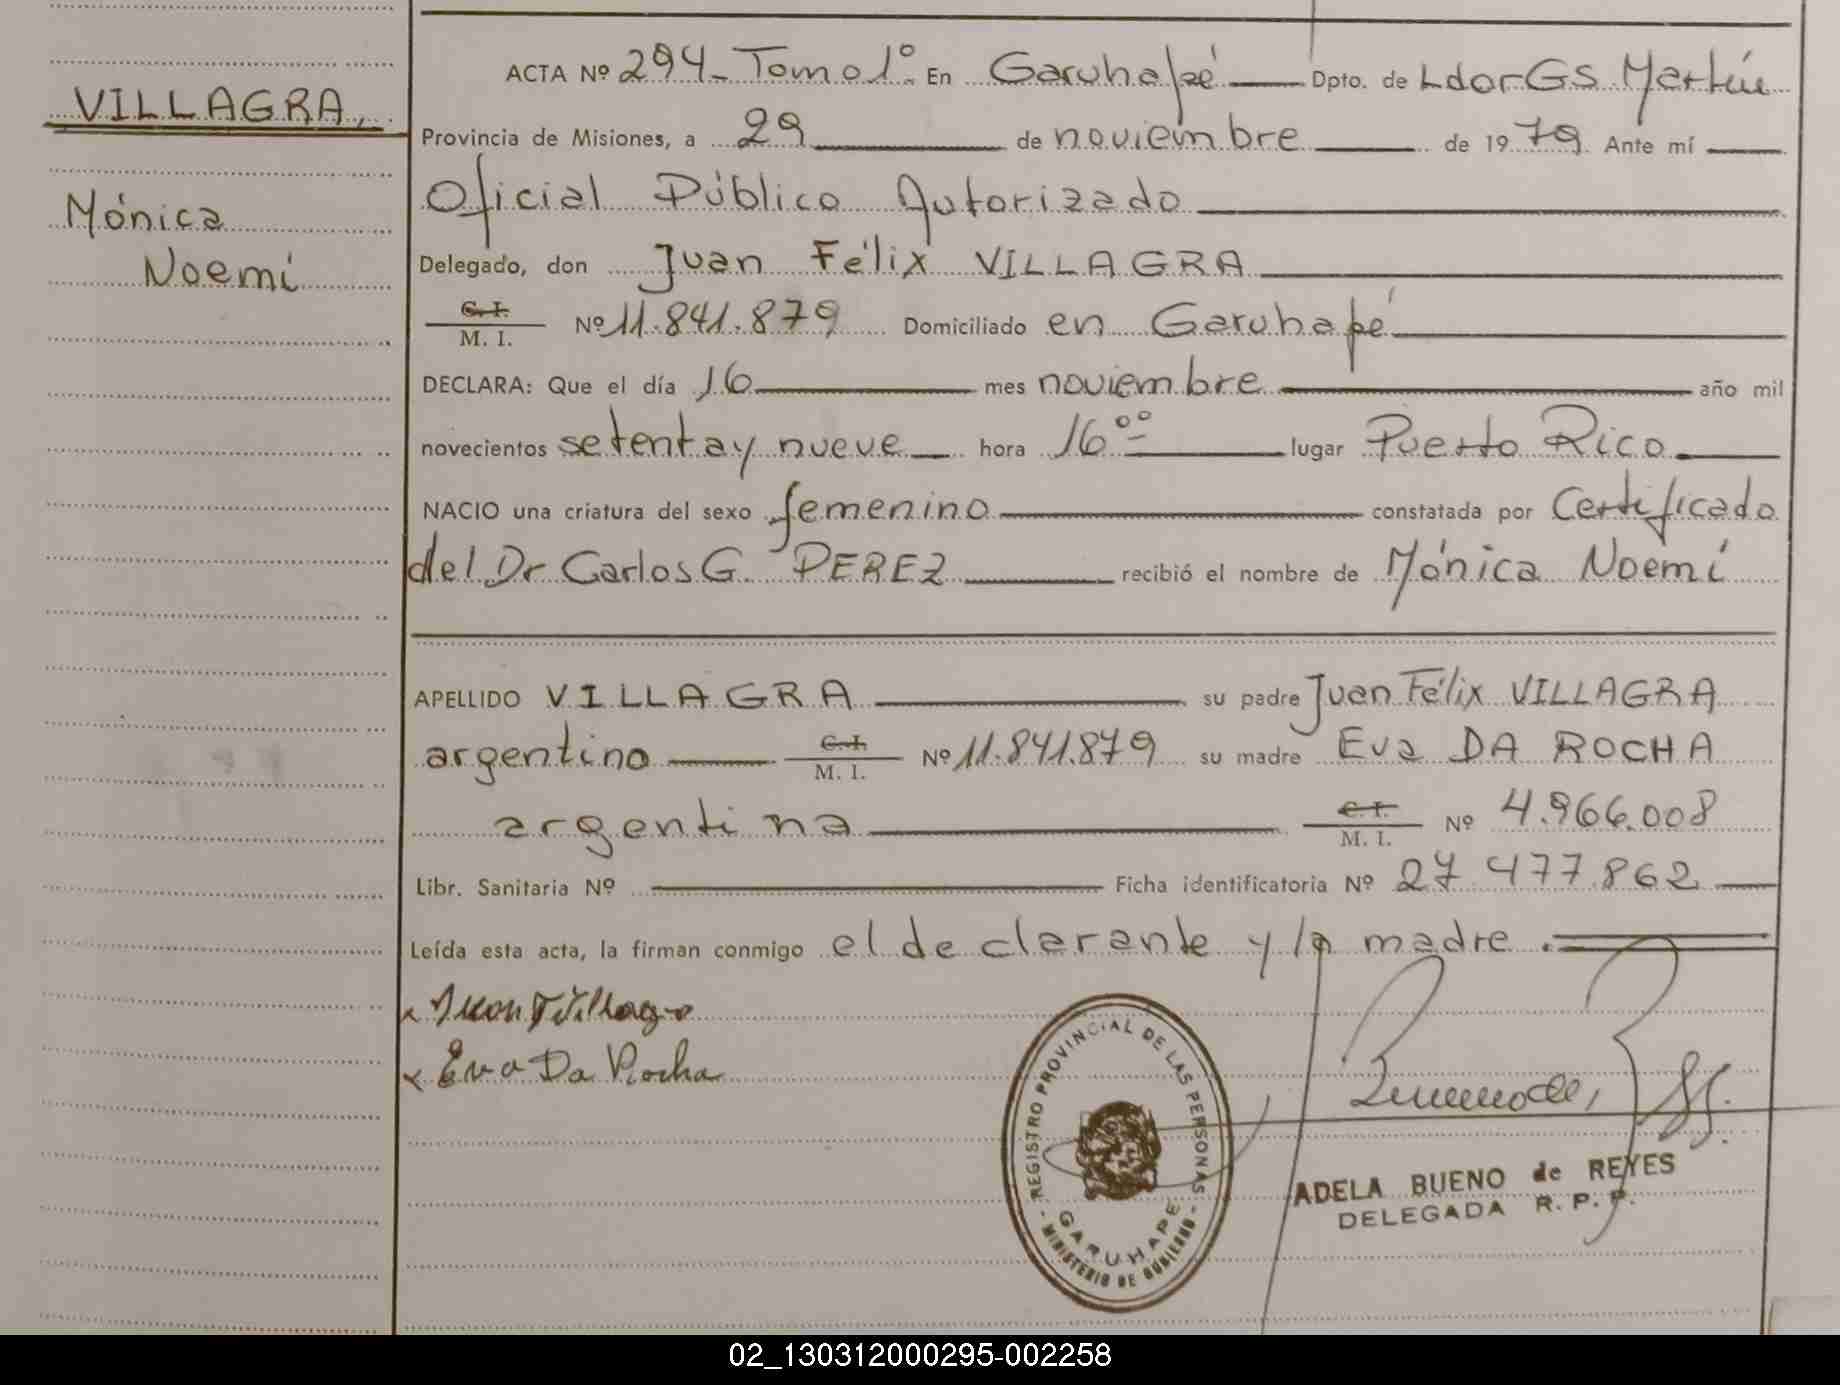 VILLAGRA,
Mónica
Noemí
ACTA Nº 294- Tomo 1º. En Garuhapé Dpto. de Ldor GS. Martín
Provincia de Misiones, a 29 de noviembre de 1979. Ante mí
Oficial Público Autorizado
Delegado, don Juan Félix VILLAGRA
C. I.
M. I. Nº 11.841.879 Domiciliado en Garuhapé
DECLARA: Que el día 16 mes noviembre año mil
novecientos setenta y nueve hora 16ºº lugar Puerto Rico
NACIO una criatura del sexo femenino constatada por Certificado
del Dr Carlos G. PEREZ recibió el nombre de Mónica Noemí
APELLIDO VILLAGRA su padre Juan Félix VILLAGRA
argentino C. I.
M. I. Nº 11.841.879 su madre Eva DA ROCHA
argentina C. I.
M. I. Nº 4.966.008
Libr. Sanitaria Nº Ficha identificatoria Nº 27.477.862
Leída esta acta, la firman conmigo el declarante y la madre.
Eva Da Rocha
REGISTRO PROVINCIAL DE LAS PERSONAS
GARUHAPE
- MINISTERIO DE GOBIERNO -
ADELA BUENO de REYES
DELEGADA R. P. P.
02_130312000295-002258